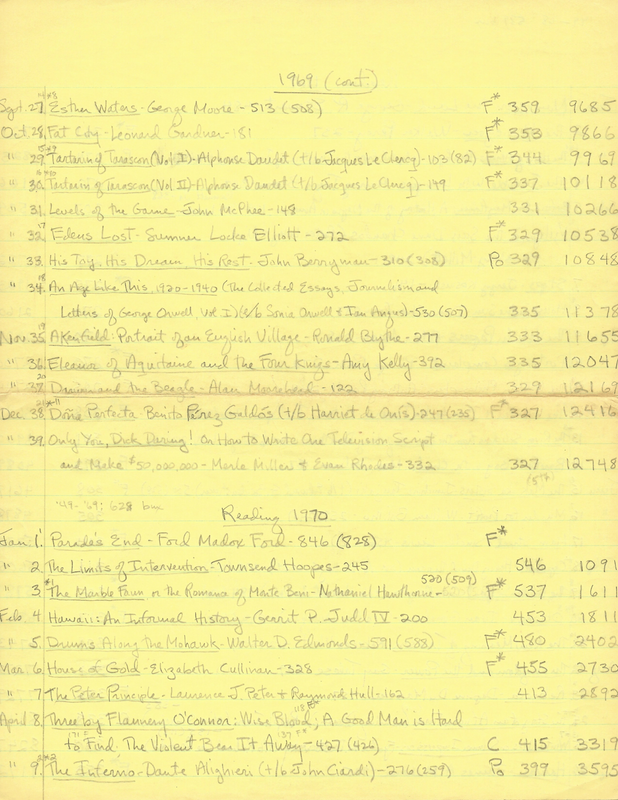 1969 (cont.)
Sept. 27. Esther Waters - George Moore - 513 (508) F* 359 9685
Oct. 28. Fat City - Leonard Gardner - 181 F* 353 9866
" 29. Tartarin of Tarascon (Vol I) - Alphonse Daudet (t/b Jacques Le Clercq) - 103 (82) F* 344 9969
" 30. Tartarin of Tarascon (Vol II) - Alphonse Daudet (t/b Jacques Le Clercq) - 149 F* 337 10118
" 31. Levels of the Game - John McPhee - 148 331 10266
" 32. Edens Lost - Sumner Locke Elliott - 272 F* 329 10538
" 33. His Toy, His Dream, His Rest - John Berryman - 310 (308) Po 329 10848
" 34. An Age Like This, 1920-1940 (The Collected Essays, Journalism and
Letters of George Orwell, Vol I) (e/b Sonia Orwell & Ian Angus) - 530 (507) 335 11378
Nov. 35. Akenfield: Portrait of an English Village - Ronald Blythe - 277 333 11655
" 36. Eleanor of Aquitaine and the Four Kings - Amy Kelly - 392 335 12047
" 37. Darwin and the Beagle - Alan Moorehead - 122 329 12169
Dec. 38. Doña Perfecta Benito Pérez Galdós (t/b Harriet de Onís) - 247 (235) F* 327 12416
" 39. Only You, Dick Daring! or How to Write One Television Script
and Make $50,000,000 - Merle Miller & Evan Rhodes - 332 327 12748
(5th)
'49-'69: 628 books
Reading 1970
Jan. 1. Parade's End - Ford Madox Ford - 846 (828) F*
" 2. The Limits of Intervention - Townsend Hoopes - 245 546 1091
" 3. The Marble Faun or the Romance of Monte Beni - Nathaniel Hawthorne - 520 (509) F* 537 1611
Feb. 4. Hawaii: An Informal History - Gerrit P. Judd IV - 200 453 1811
" 5. Drums Along the Mohawk - Walter D. Edmonds - 591 (588) F* 480 2402
Mar. 6. House of Gold - Elizabeth Cullinan - 328 F* 455 2730
" 7. The Peter Principle - Laurence J. Peter & Raymond Hull - 162 413 2892
April 8. Three by Flannery O'Connor: Wise Blood; A Good Man is Hard
to Find. The Violent Bear It Away - 427 (426) C 415 3319
" 9. The Inferno - Dante Alighieri (t/b John Ciardi) - 276 (259) Po 399 3595